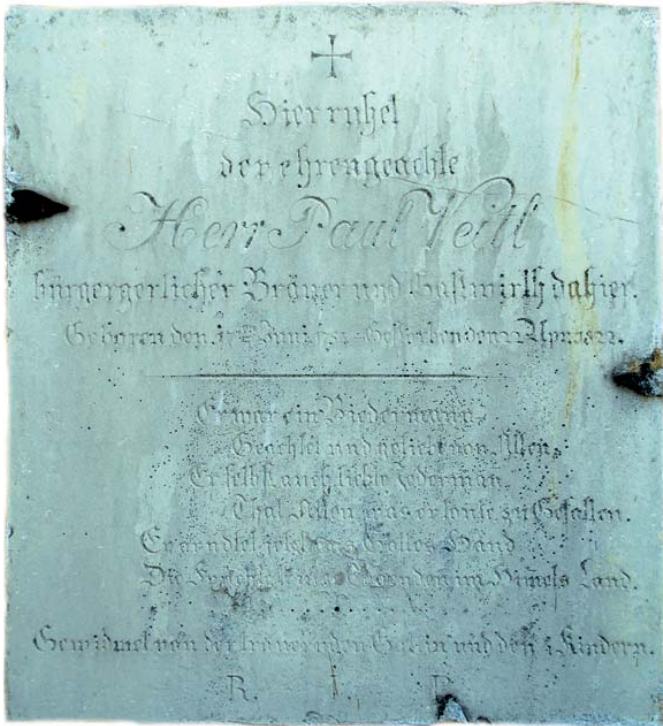 Hier ruhet
der ehrengeachte
Herr Paul Veitl
bürgergerlicher Bräuer und Gastwirth dahier.
Geboren den Juni Gestorben den 22 Apr. 1822.
Er war ein Biedermann,
Geachtet und geliebt von Allen,
Er selbst auch liebte Jederman,
That Allen, was er konte zu Gefallen.
Er ärndtet jetzt aus Gottes Hand
Die im Himels Land.
Gewidmet von der trauernden Gattin und den Kindern.
R. I. P.